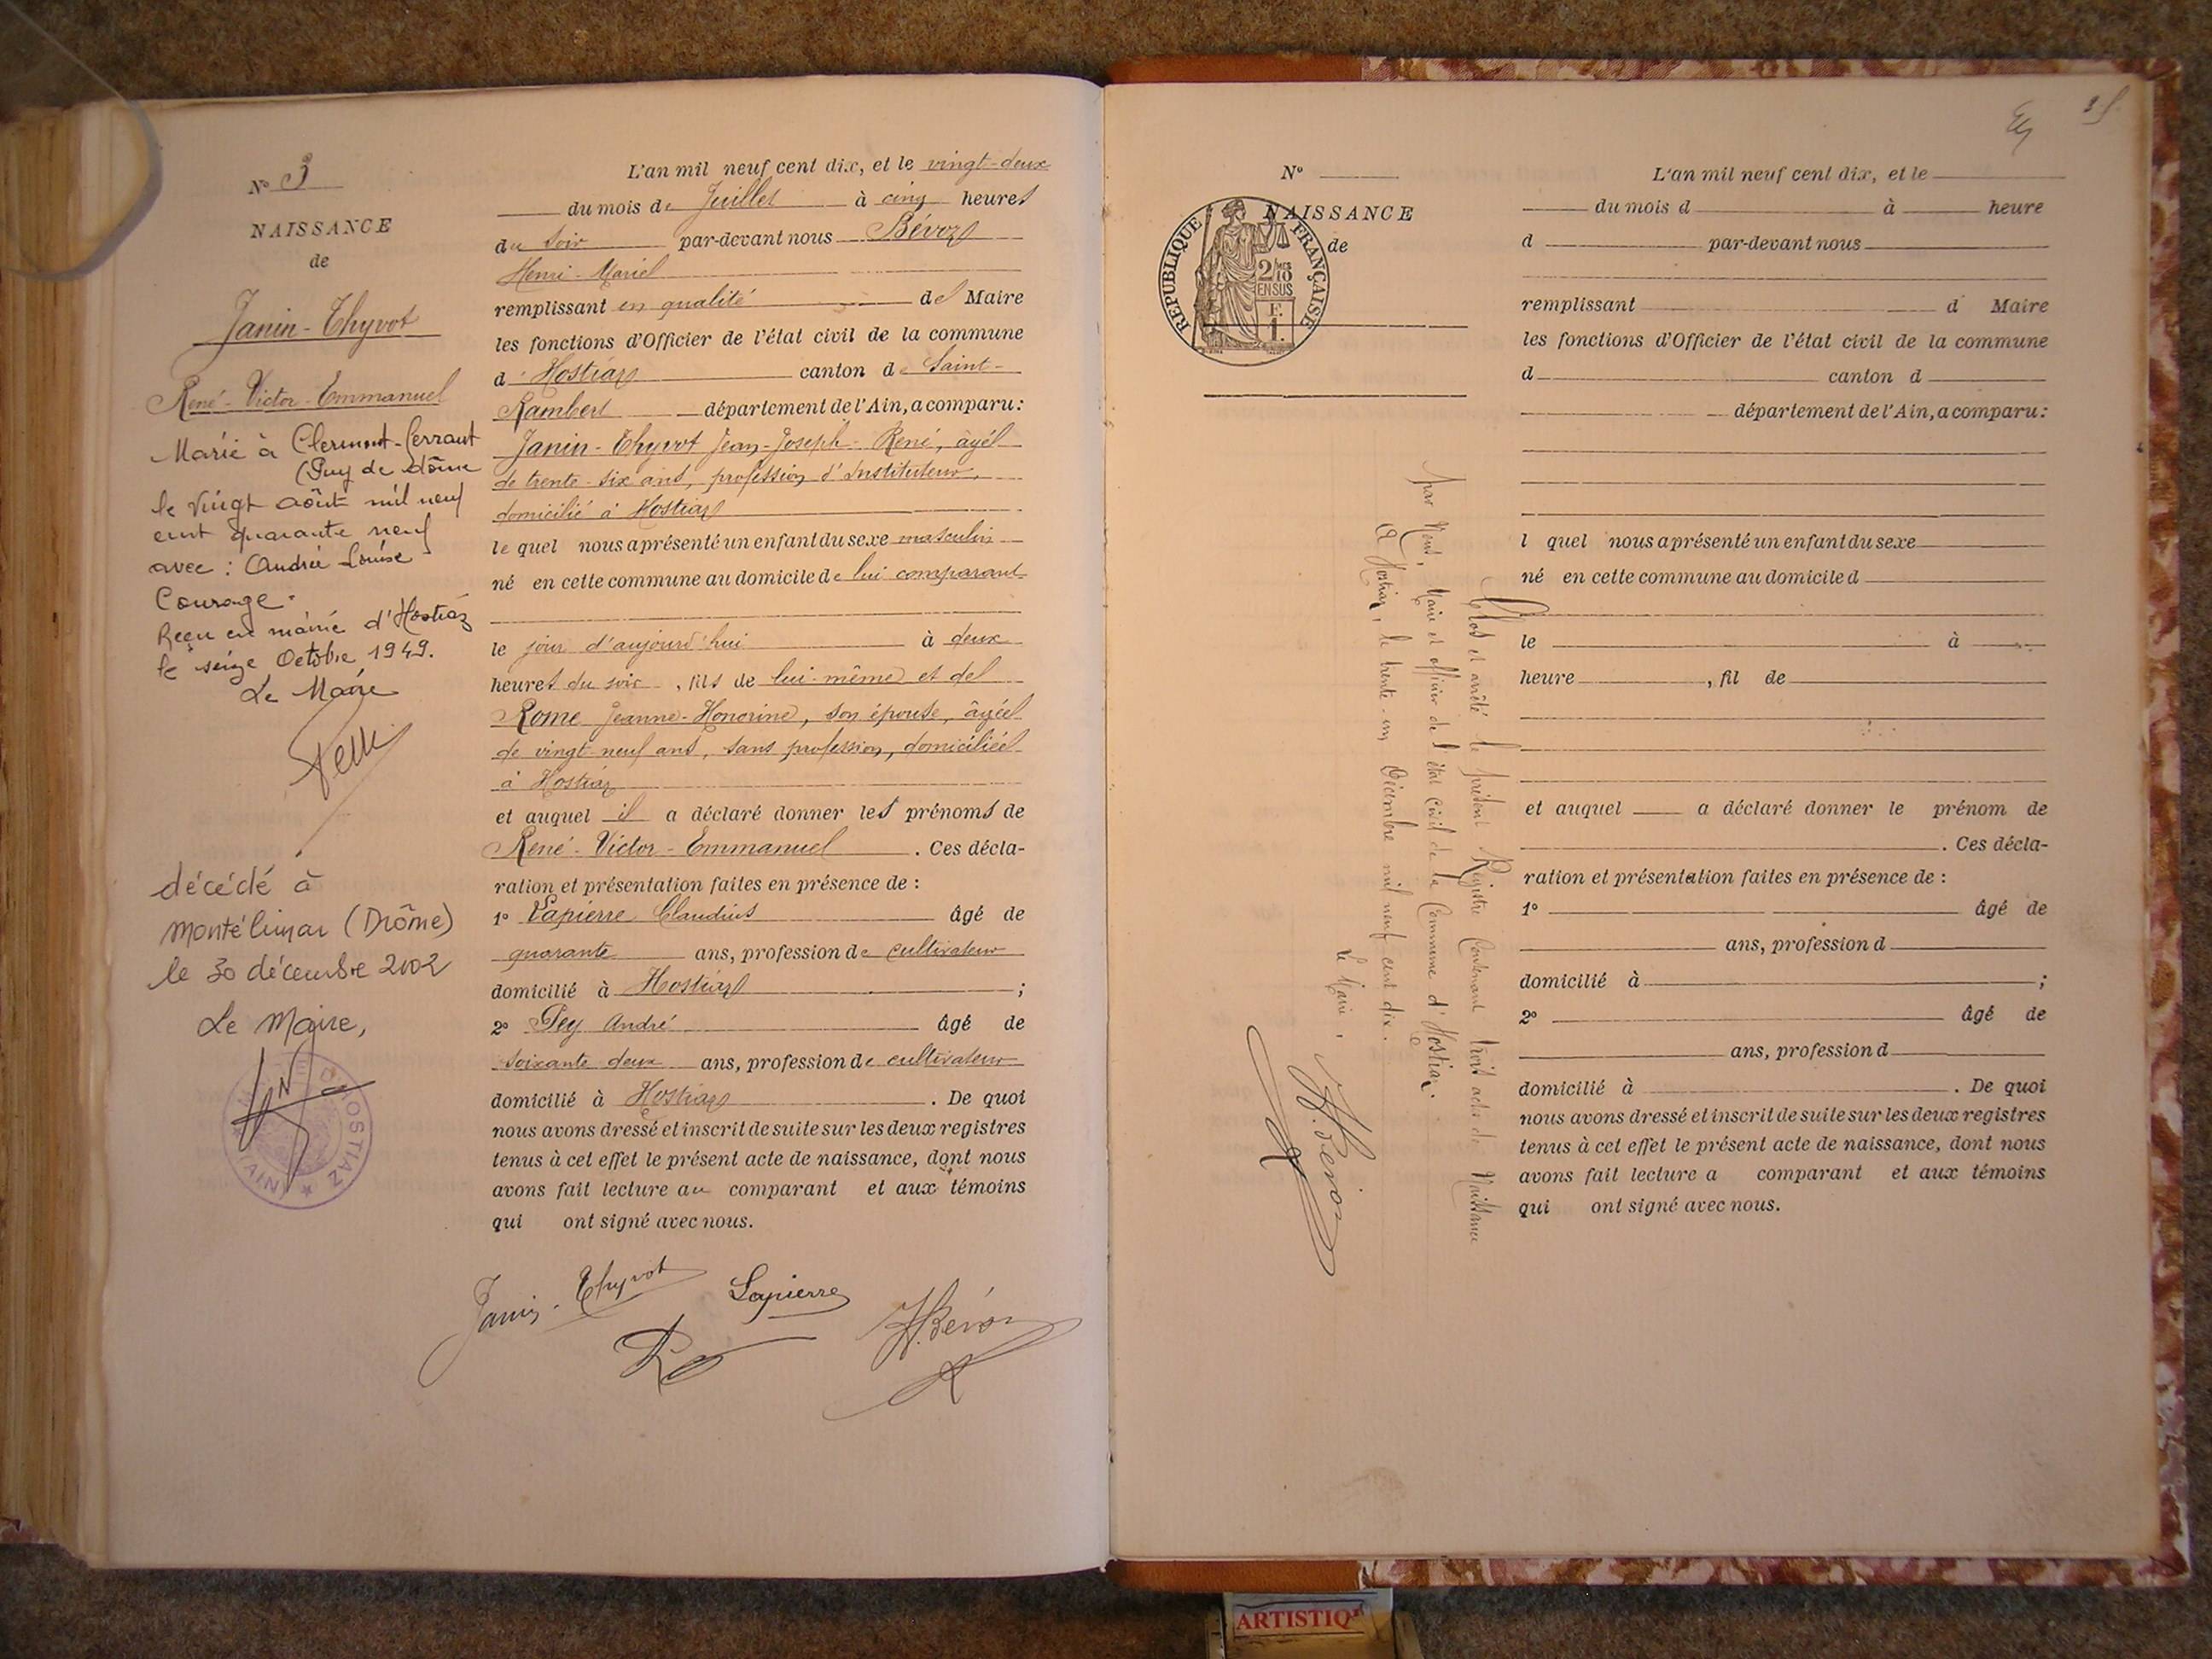 N° 3
NAISSANCE
de
Janin-Thyvot
René-Victor-Emmanuel
Marié à Clermont-Ferrant
(Puy de Dôme
le vingt août mil neuf
cent quarante neuf
avec : Andrée Louise
Courage.
Reçu en mairie d'Hostiaz
le seize Octobre 1949.
Le Maire
décédé à
Montélimar (Drôme)
le 30 décembre 2002
Le Maire,
MAIRIE D'HOSTIAZ
(AIN)
L'an mil neuf cent dix, et le vingt-deux
du mois de Juillet à cinq heures
du soir par-devant nous Bévoz
Henri-Marie
remplissant en qualité de Maire
les fonctions d'Officier de l'état civil de la commune
d'Hostiaz canton de Saint-
Rambert département de l'Ain, a comparu :
Janin-Thyvot Jean-Joseph-René, âgé
de trente-six ans, profession d'Instituteur,
domicilié à Hostiaz
lequel nous a présenté un enfant du sexe masculin
né en cette commune au domicile de lui comparant
le jour d'aujourd'hui à deux
heures du soir, fils de lui-même et de
Rome Jeanne-Honorine, son épouse, âgée
de vingt-neuf ans, sans profession, domiciliée
à Hostiaz
et auquel il a déclaré donner les prénoms de
René-Victor-Emmanuel. Ces décla-
ration et présentation faites en présence de :
1° Lapierre Claudius âgé de
quarante ans, profession de cultivateur
domicilié à Hostiaz ;
2° Pey André âgé de
soixante deux ans, profession de cultivateur
domicilié à Hostiaz. De quoi
nous avons dressé et inscrit de suite sur les deux registres
tenus à cet effet le présent acte de naissance, dont nous
avons fait lecture au comparant et aux témoins
qui ont signé avec nous.
Janin-Thyvot Lapierre
H. Bévoz
N°
NAISSANCE
de
REPUBLIQUE FRANÇAISE
2/10 MES
EN SUS
F.
1.
Clos et arrêté le présent Registre contenant trois actes de Naissance
par Nous, Maire et officier de l'état civil de la Commune d'Hostiaz.
A Hostiaz, le trente-un Décembre mil neuf cent dix.
Le Maire,
H. Bévoz
L'an mil neuf cent dix, et le
du mois d à heure
d par-devant nous
remplissant d Maire
les fonctions d'Officier de l'état civil de la commune
d canton d
département de l'Ain, a comparu :
l quel nous a présenté un enfant du sexe
né en cette commune au domicile d
le à
heure , fil de
et auquel a déclaré donner le prénom de
. Ces décla-
ration et présentation faites en présence de :
1° âgé de
ans, profession d
domicilié à ;
2° âgé de
ans, profession d
domicilié à . De quoi
nous avons dressé et inscrit de suite sur les deux registres
tenus à cet effet le présent acte de naissance, dont nous
avons fait lecture a comparant et aux témoins
qui ont signé avec nous.
ARTISTIQ